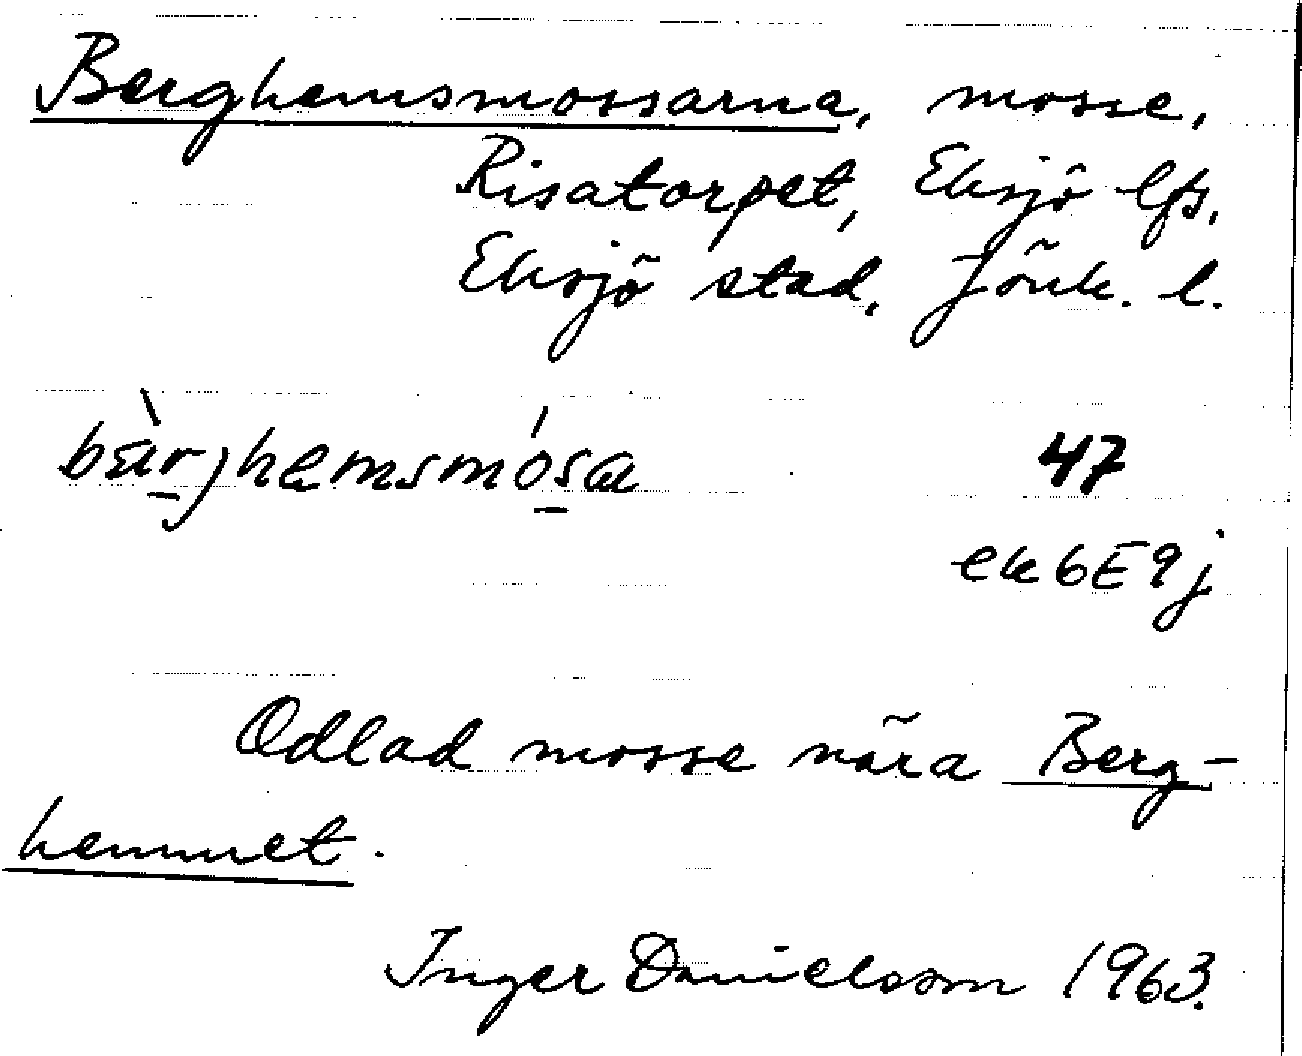 Berghemsmossarna, mosse,
Risatorpet, Eksjö lfs,
Eksjö stad, Jönk. l.
bàrjhemsmósa 47
ek 6E9j
Odlad mosse nära Berg-
hemmet.
Inger Danielsson 1963.